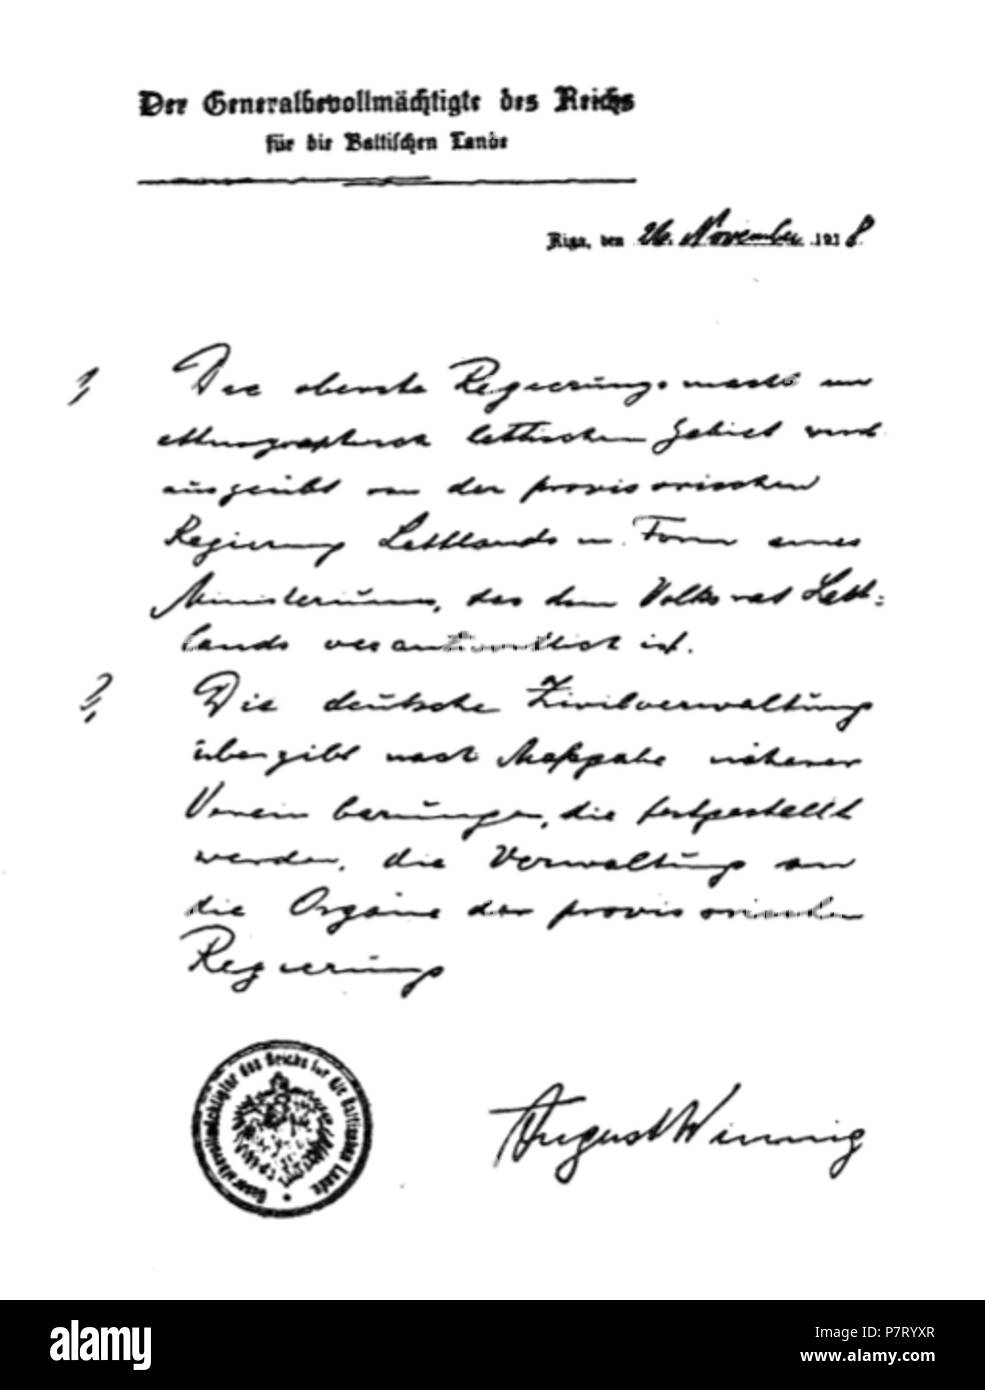 Der Generalbevollmächtigte des Reichs
für die Baltischen Lande
Riga, den 26. November 1918
1, Die oberste Regierungsmacht im
ethnographisch lettischen Gebiet wird
ausgeübt von der provisorischen
Regierung Lettlands in Form eines
Ministeriums, das dem Volksrat Lett=
lands verantwortlich ist.
2, Die deutsche Zivilverwaltung
übergibt nach Maßgabe näherer
Vereinbarungen, die festgestellt
werden, die Verwaltung an
die Organe der provisorischen
Regierung
Generalbevollmächtigter des Reichs für die Baltischen Lande
August Winnig
alamy
Image ID: P7RYXR
www.alamy.com